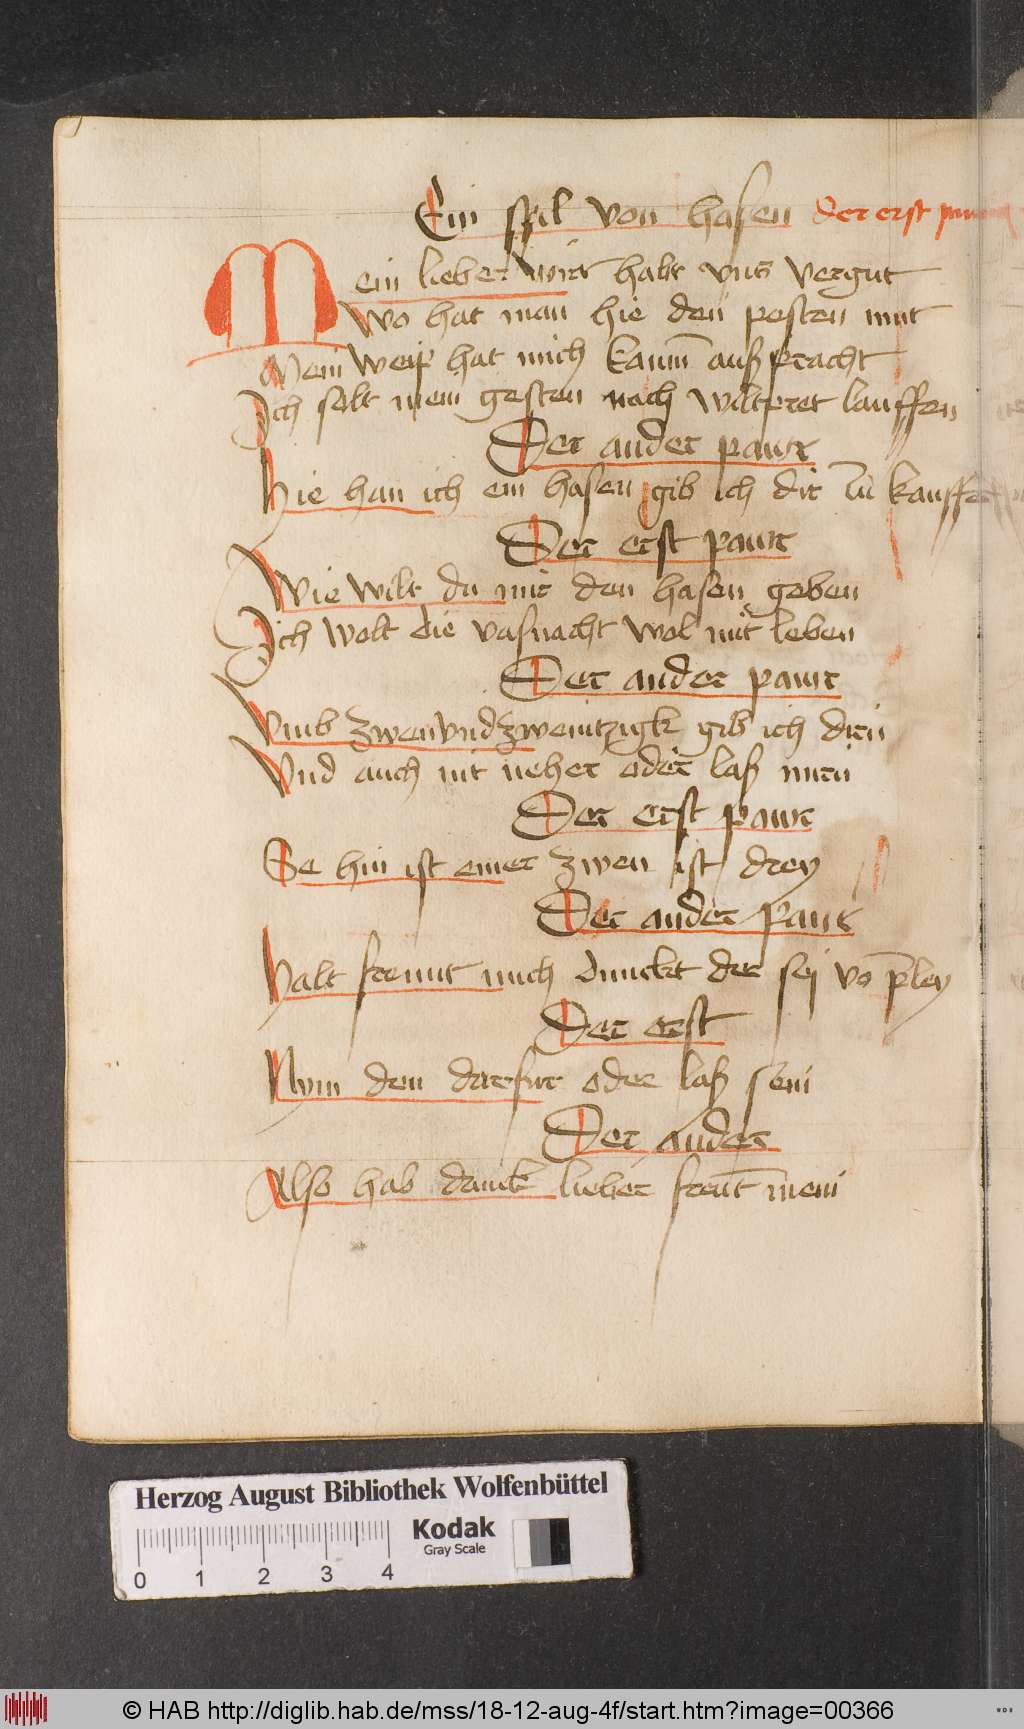 Ein spil von hasen der erst paur
Mein lieber wirt habt vns vergut
Wo hat man hie den pesten mut
Mein weip hat mich kaum auß pracht
Ich solt mein gesten nach wiltpret lauffen
Der ander paur
Hie han ich ein hasen gib ich dir zu kauffen
Der erst paur
Wie wilt du mir den hasen geben
Ich wolt die vasnacht wol mit leben
Der ander paur
Vmb zwenvndzweintzigk gib ich dirn
Vnd auch nit neher oder laß mirn
Der erst paur
Se hin ist einer zwen ist drey
Der ander paur
Halt freunt mich dunckt der sej vo pley
Der erst
Nym den darfur oder laß sein
Der ander
Also hab danck lieber freut mein
Herzog August Bibliothek Wolfenbüttel
Kodak
Gray Scale
0 1 2 3 4
© HAB http://diglib.hab.de/mss/18-12-aug-4f/start.htm?image=00366